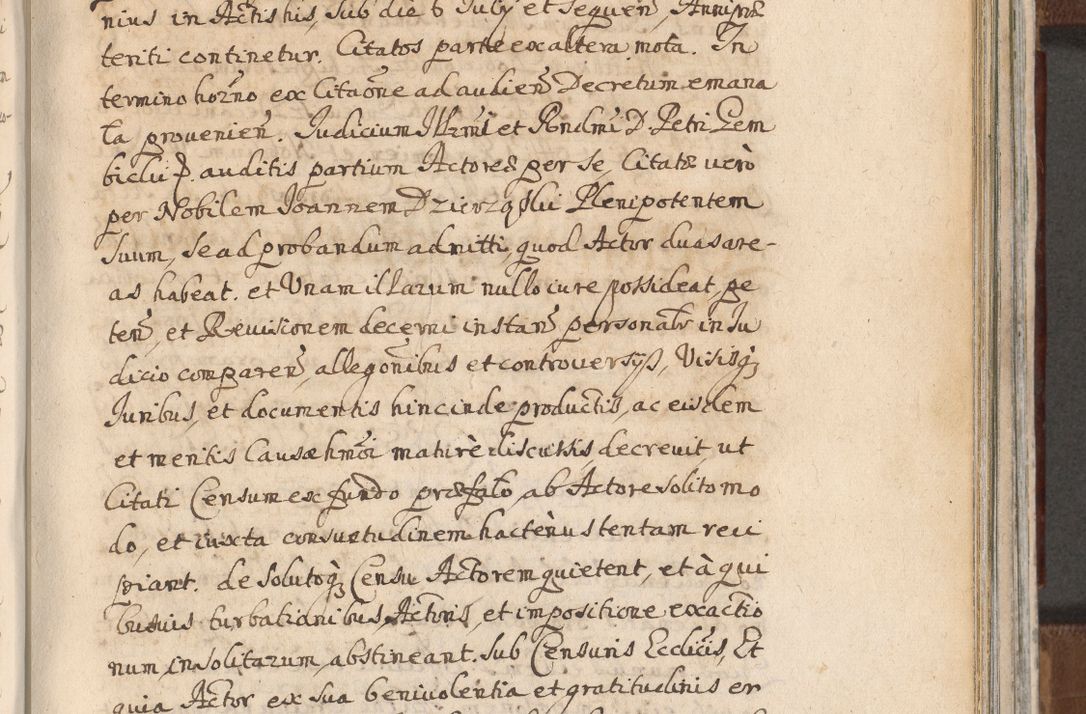 nius in Actis his, sub die 6 July et sequen, Anni præ
teriti continetur. Citatos parte ex altera mota. In
termino hozno ex Citaone ad audien Decretum emana
ta provenien. Judicium Illrmi et Rndmi D. Petri Gem
biclii P. auditis partium Actore per se, Citatæ verò
per Nobilem Joannem Dzierzqslii Plenipotentem
suum, se ad probandum admitti, quod Actor duas are-
as habeat. et Unam illarum nullo iure possideat, pe
ten, et Revisionem decerni instan personalr in Ju
dicio comparen, allegonibus et controversyß, Visisq
Juribus, et documentis hinc inde productis, ac eisdem
et meritis Causæ hmoi maturè discussis decrevit ut
Citati Censum ex fundo præfato, ab Actore solito mo
do, et iuxta consuetudinem hactenus tentam reci
piant. de solutoq Censu Actorem quietent, et à qui
busvis turbationibus Actoris, et impositione exactio
num insolitarum abstineant. sub Censuris Ecclicis, Et
quia Actor ex sua benivolentia et gratitudinis er